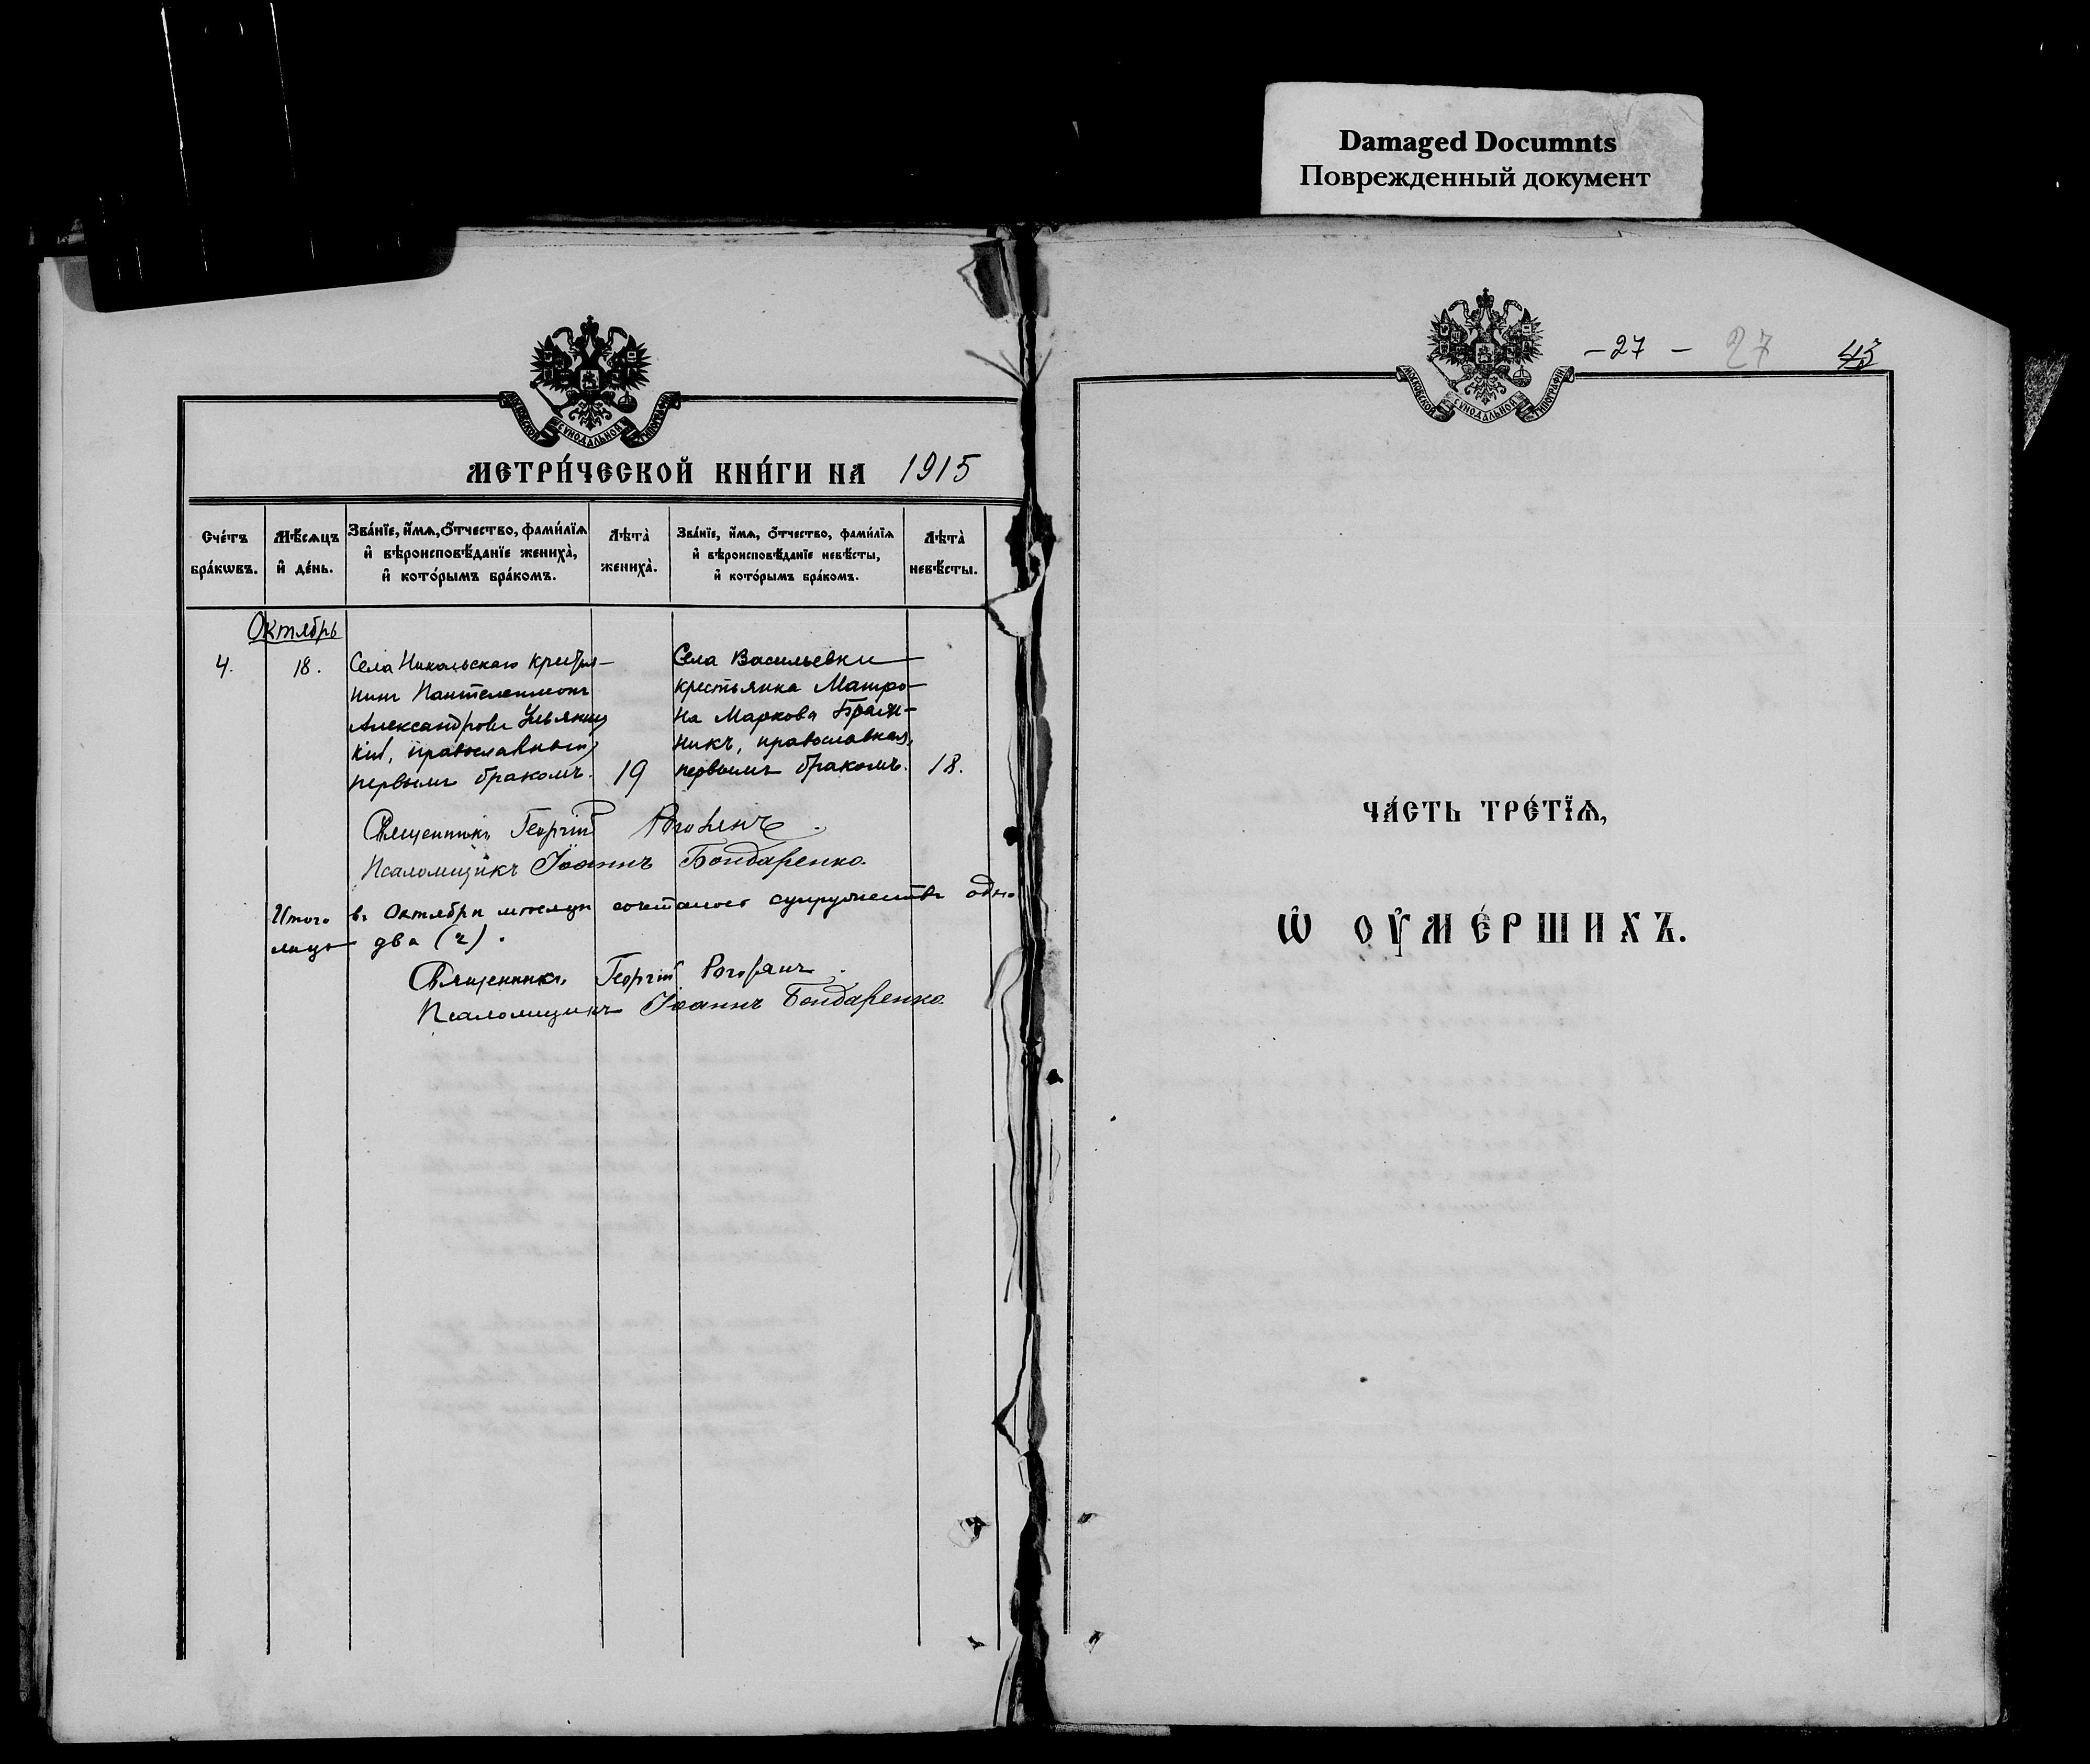 Damaged Documnts
Поврежденный документ
МОСКОВСКОЙ СѴНОДАЛЬНОЙ ТИПОГРАФІИ
МЕТРИ́ЧЕСКОЙ КНИ́ГИ НА 1915
Сче́тъ бра́кωвъ.
Мѣ́сѧцъ и҆ де́нь.
Зва́нїе, и҆́мѧ, ѻ҆́тчество, фами́лїѧ и҆ вѣроисповѣ́данїе жениха̀, и҆ кото́рымъ бра́комъ.
Лѣта̀ жениха̀.
Зва́нїе, и҆́мѧ, ѻ҆́тчество, фами́лїѧ и҆ вѣроисповѣ́данїе невѣ́сты, и҆ кото́рымъ бра́комъ.
Лѣта̀ невѣ́сты.
Октябрь
4.
18.
Села Никольскаго крестья-
нинъ Пантелеимонъ
Александровъ
кій, православный
первымъ бракомъ.
19
Села Васильевки
крестьянка Матро-
на Маркова Браж-
никъ, православная,
первымъ бракомъ.
18.
Священникъ Георгій
Псаломщикъ Іоаннъ Бондаренко.
Итого въ Октябрѣ мѣсяцѣ сочталось супружествъ одно
лицъ два (2).
Священникъ Георгій
Псаломщикъ Іоаннъ Бондаренко.
МОСКОВСКОЙ СѴНОДАЛЬНОЙ ТИПОГРАФІИ
- 27 - 27
ЧА́СТЬ ТРЕ́ТЇѦ,
Ѡ҆ ОУ҆МЕ́РШИХЪ.